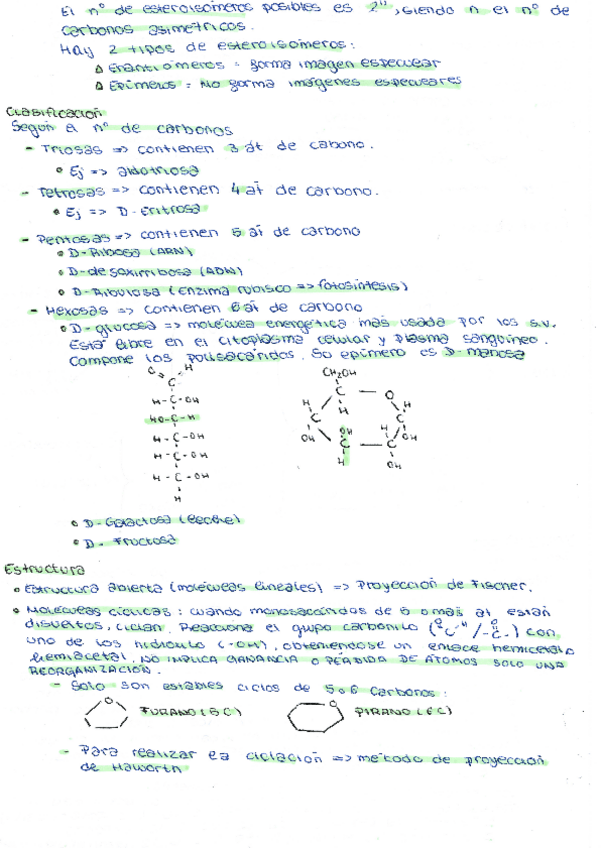 El nº de estereoisómeros posibles es 2ⁿ, siendo n el nº de
carbonos asimétricos.
Hay 2 tipos de estereoisómeros:
△ Enantiómeros = forma imagen especular
△ Epímeros = No forma imágenes especulares
Clasificación
Según el nº de carbonos
- Triosas => contienen 3 át de cabono.
• Ej => aldotriosa
- Tetrosas => contienen 4 át de carbono.
• Ej => D-Eritrosa
- Pentosas => contienen 5 át de carbono
• D-Ribosa (ARN)
• D-desoxirribosa (ADN)
• D-Ribulosa (Enzima rubisco => fotosíntesis)
- Hexosas => contienen 6 át de carbono
• D-glucosa => molécula energética más usada por los s.v.
Está libre en el citoplasma celular y plasma sanguíneo.
Compone los polisacáridos. Su epímero es D-manosa
O H
C
H-C-OH
HO-C-H
H-C-OH
H-C-OH
H-C-OH
H
CH₂OH
C — O
H H H
C C
OH OH H OH
C — C
H OH
• D-Galactosa (leche)
• D-Fructosa
Estructura
• Estructura abierta (moléculas lineales) => Proyección de Fischer.
• Moléculas cíclicas: cuando monosacáridos de 5 o más át están
disueltos, ciclan. Reacciona el grupo carbonilo (-C-H / -C-) con
uno de los hidroxilo (-OH), obteniéndose un enlace hemicetal o
hemiacetal. NO IMPLICA GANANCIA O PÉRDIDA DE ÁTOMOS SOLO UNA
REORGANIZACIÓN.
- Solo son estables ciclos de 5 o 6 carbonos:
O FURANO (5C) O PIRANO (6C)
- Para realizar la ciclación => método de proyección
de Haworth